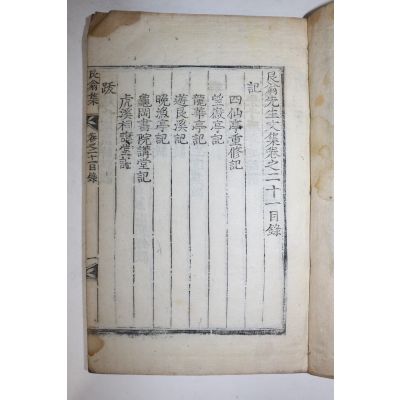 艮翁先生文集卷之二十一目錄
記
四仙亭重修記
望嶽亭記
龍華亭記
遊艮溪記
晩
亭記
龜岡書院講堂記
虎溪
記
跋
艮翁集
卷之二十一目錄
一